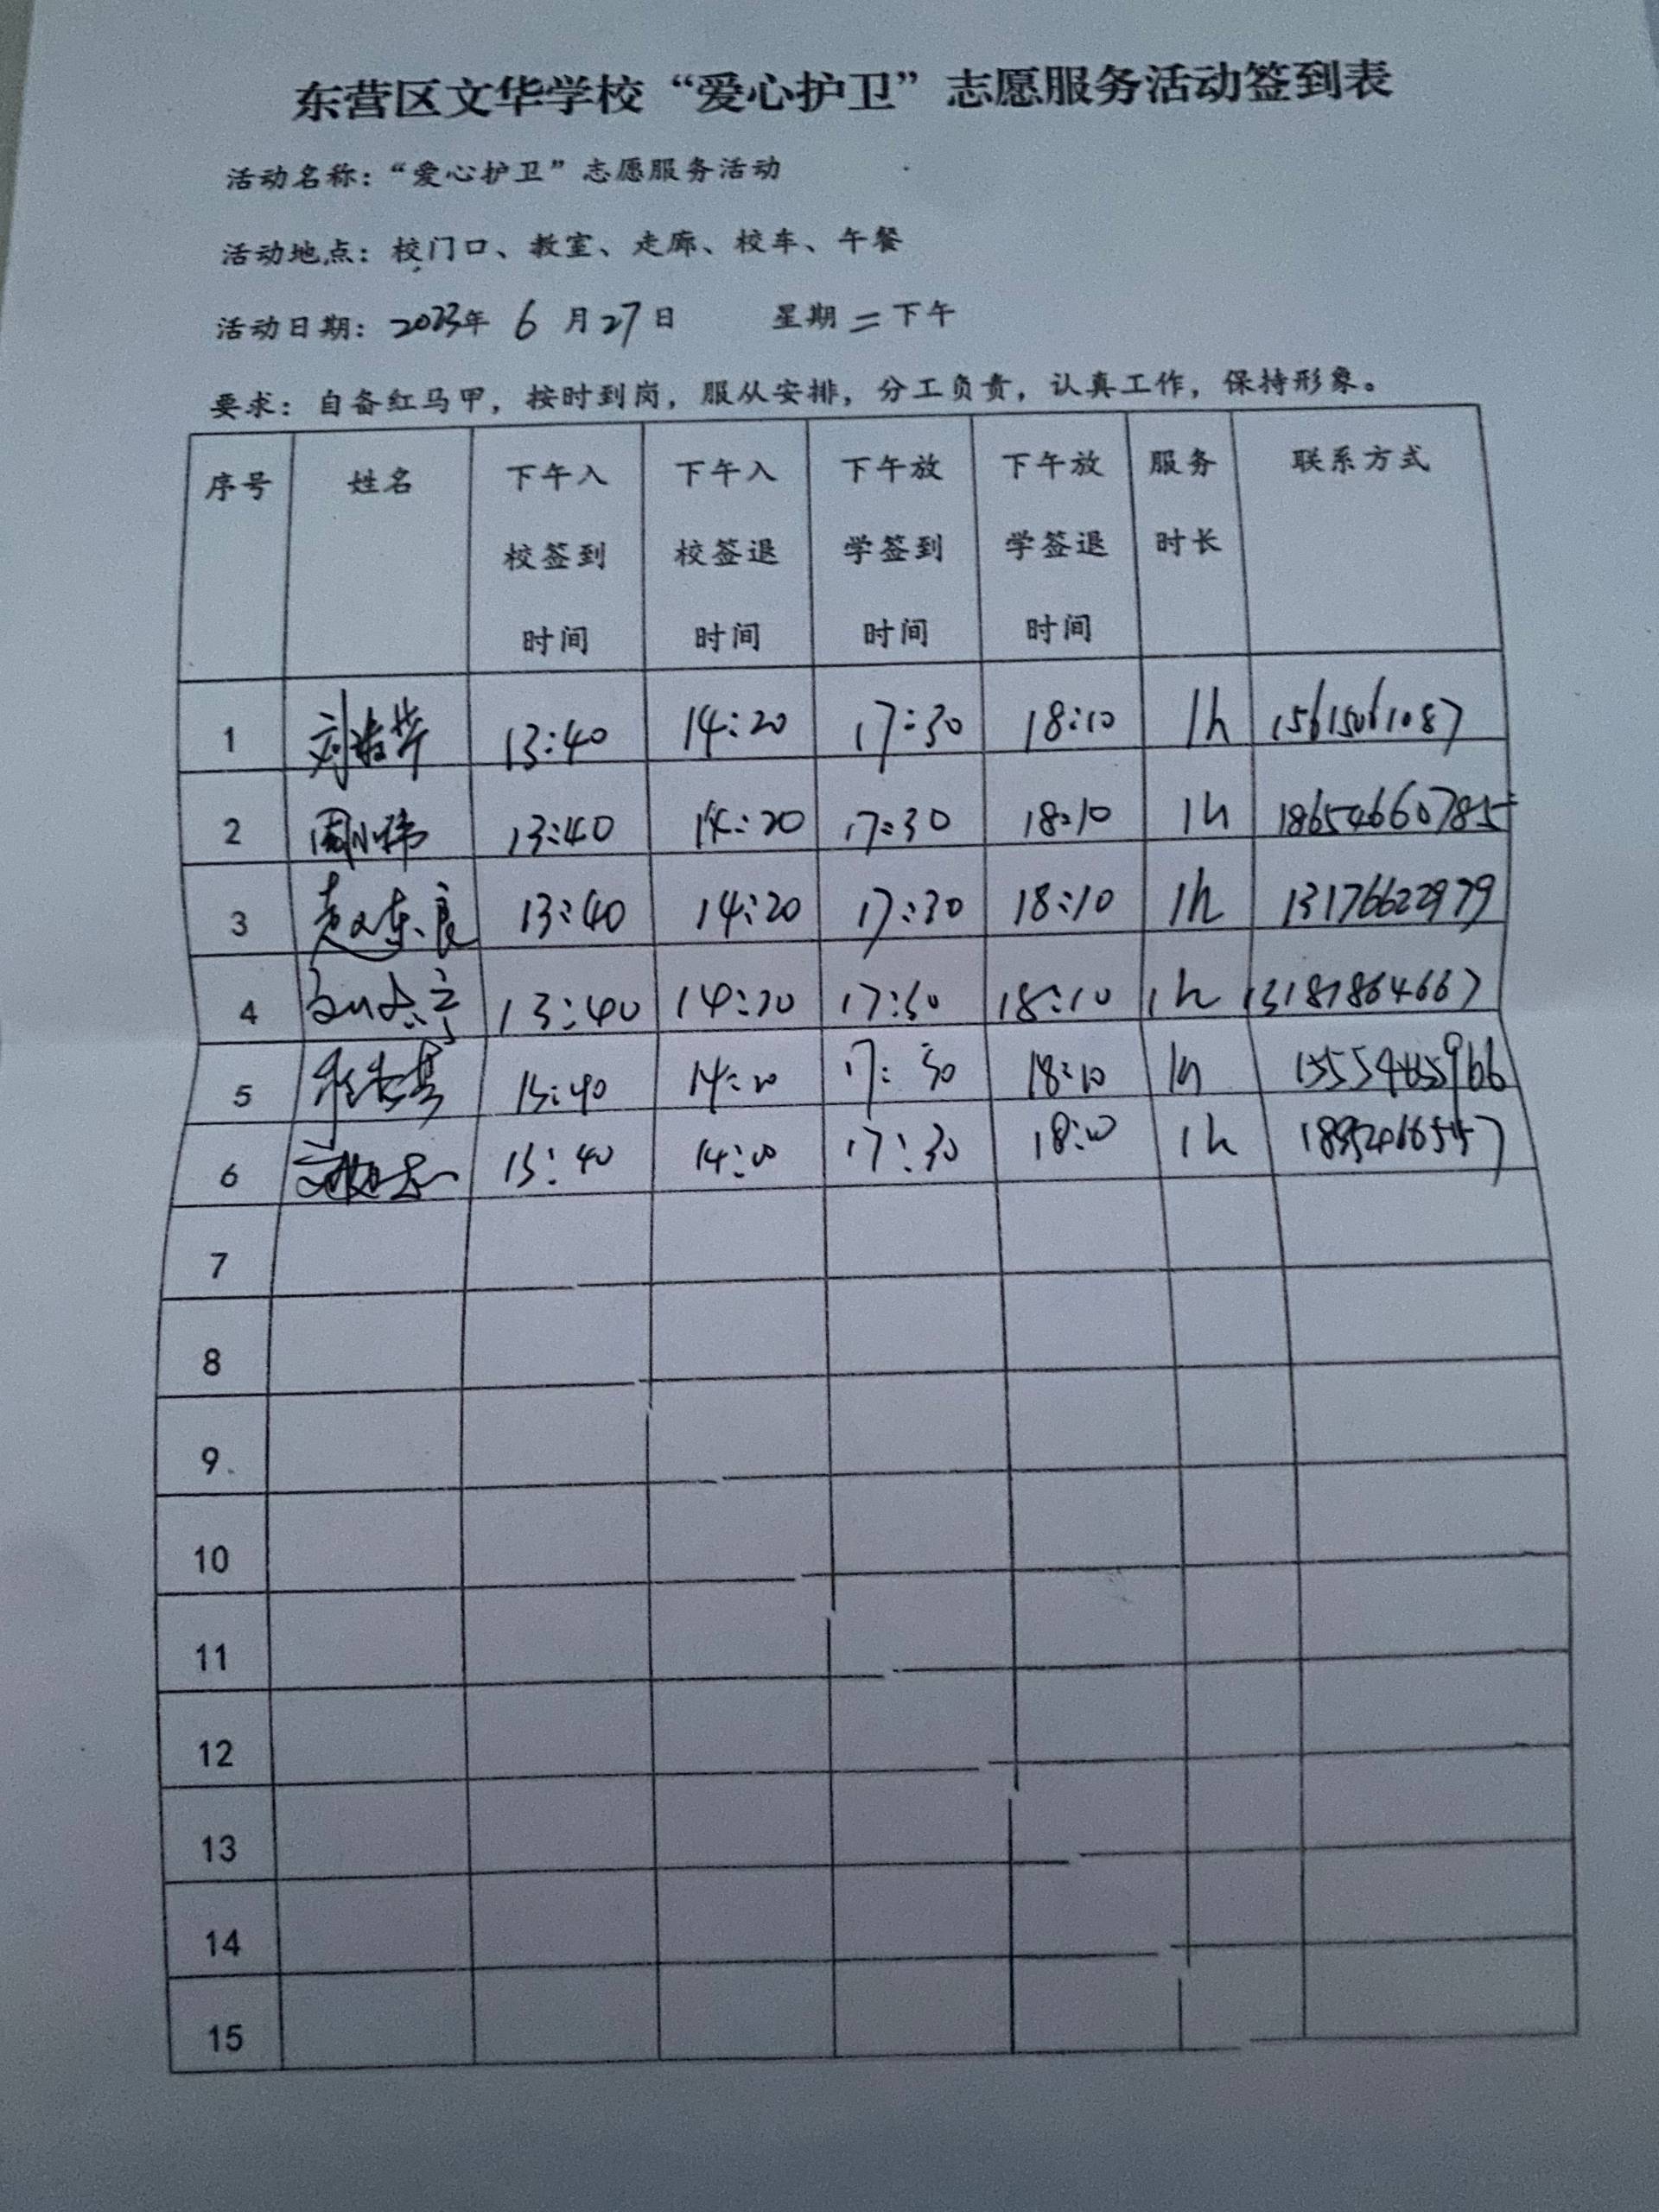 东营区文华学校“爱心护卫”志愿服务活动签到表
活动名称：“爱心护卫”志愿服务活动
活动地点：校门口、教室、走廊、校车、午餐
活动日期：2023年 6 月27日 星期二下午
要求：自备红马甲，按时到岗，服从安排，分工负责，认真工作，保持形象。
序号 姓名 下午入校签到时间 下午入校签退时间 下午放学签到时间 下午放学签退时间 服务时长 联系方式
1 13:40 14:20 17:30 18:10 1h 15615061087
2 周小伟 13:40 14:20 17:30 18:10 1h 18654660785
3 赵东良 13:40 14:20 17:30 18:10 1h 13176622979
4 13:40 14:20 17:30 18:10 1h 13181864667
5 13:40 14:20 17:30 18:10 1h
6 13:40 14:20 17:30 18:10 1h
7
8
9
10
11
12
13
14
15